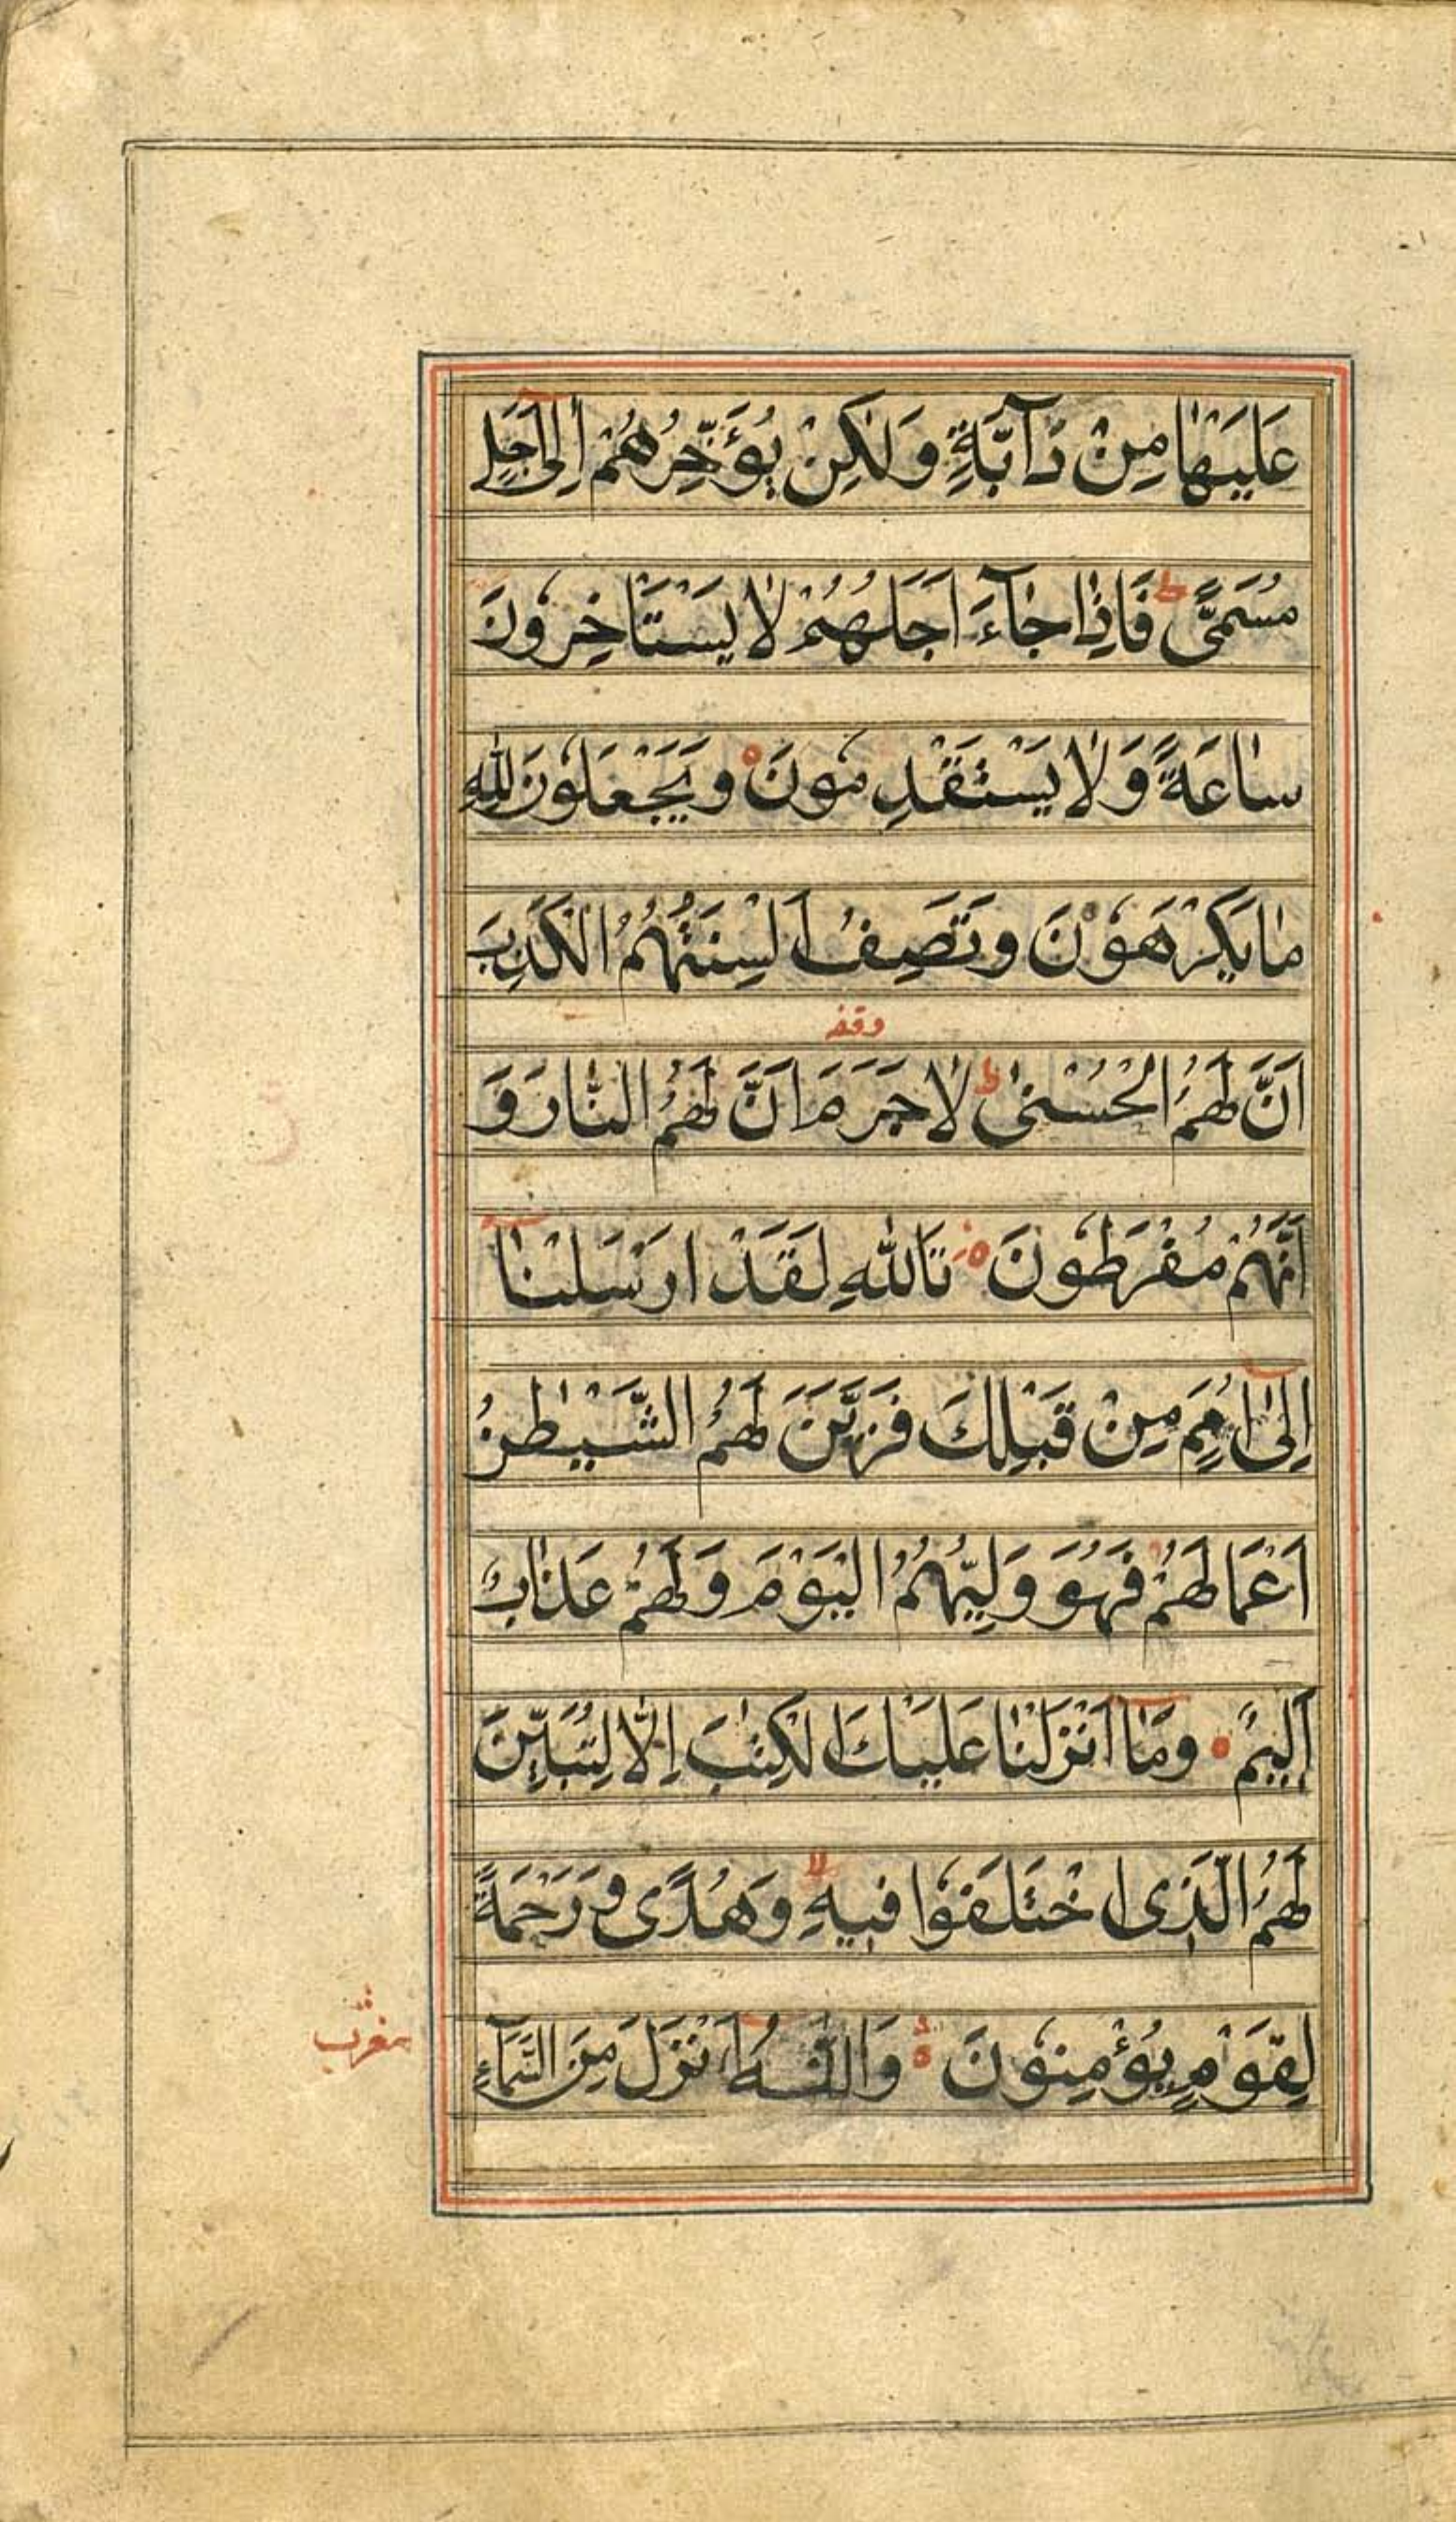 عَلَيْهَا مِنْ دَآبَّةٍ وَلٰكِنْ يُؤَخِّرُهُمْ اِلٰٓى اَجَلٍ
مُسَمًّى ط فَاِذَا جَآءَ اَجَلُهُمْ لَا يَسْتَاْخِرُوْنَ
سَاعَةً وَّلَا يَسْتَقْدِمُوْنَ وَيَجْعَلُوْنَ لِلّٰهِ
مَا يَكْرَهُوْنَ وَتَصِفُ اَلْسِنَتُهُمُ الْكَذِبَ
وقفه
اَنَّ لَهُمُ الْحُسْنٰى ط لَا جَرَمَ اَنَّ لَهُمُ النَّارَ وَ
اَنَّهُمْ مُفْرَطُوْنَ تَاللّٰهِ لَقَدْ اَرْسَلْنَآ
اِلٰٓى اُمَمٍ مِنْ قَبْلِكَ فَزَيَّنَ لَهُمُ الشَّيْطٰنُ
اَعْمَالَهُمْ فَهُوَ وَلِيُّهُمُ الْيَوْمَ وَلَهُمْ عَذَابٌ
اَلِيْمٌ وَمَآ اَنْزَلْنَا عَلَيْكَ الْكِتٰبَ اِلَّا لِتُبَيِّنَ
لَهُمُ الَّذِى اخْتَلَفُوْا فِيْهِ لا وَهُدًى وَّرَحْمَةً
لِقَوْمٍ يُؤْمِنُوْنَ وَاللّٰهُ اَنْزَلَ مِنَ السَّمَآءِ